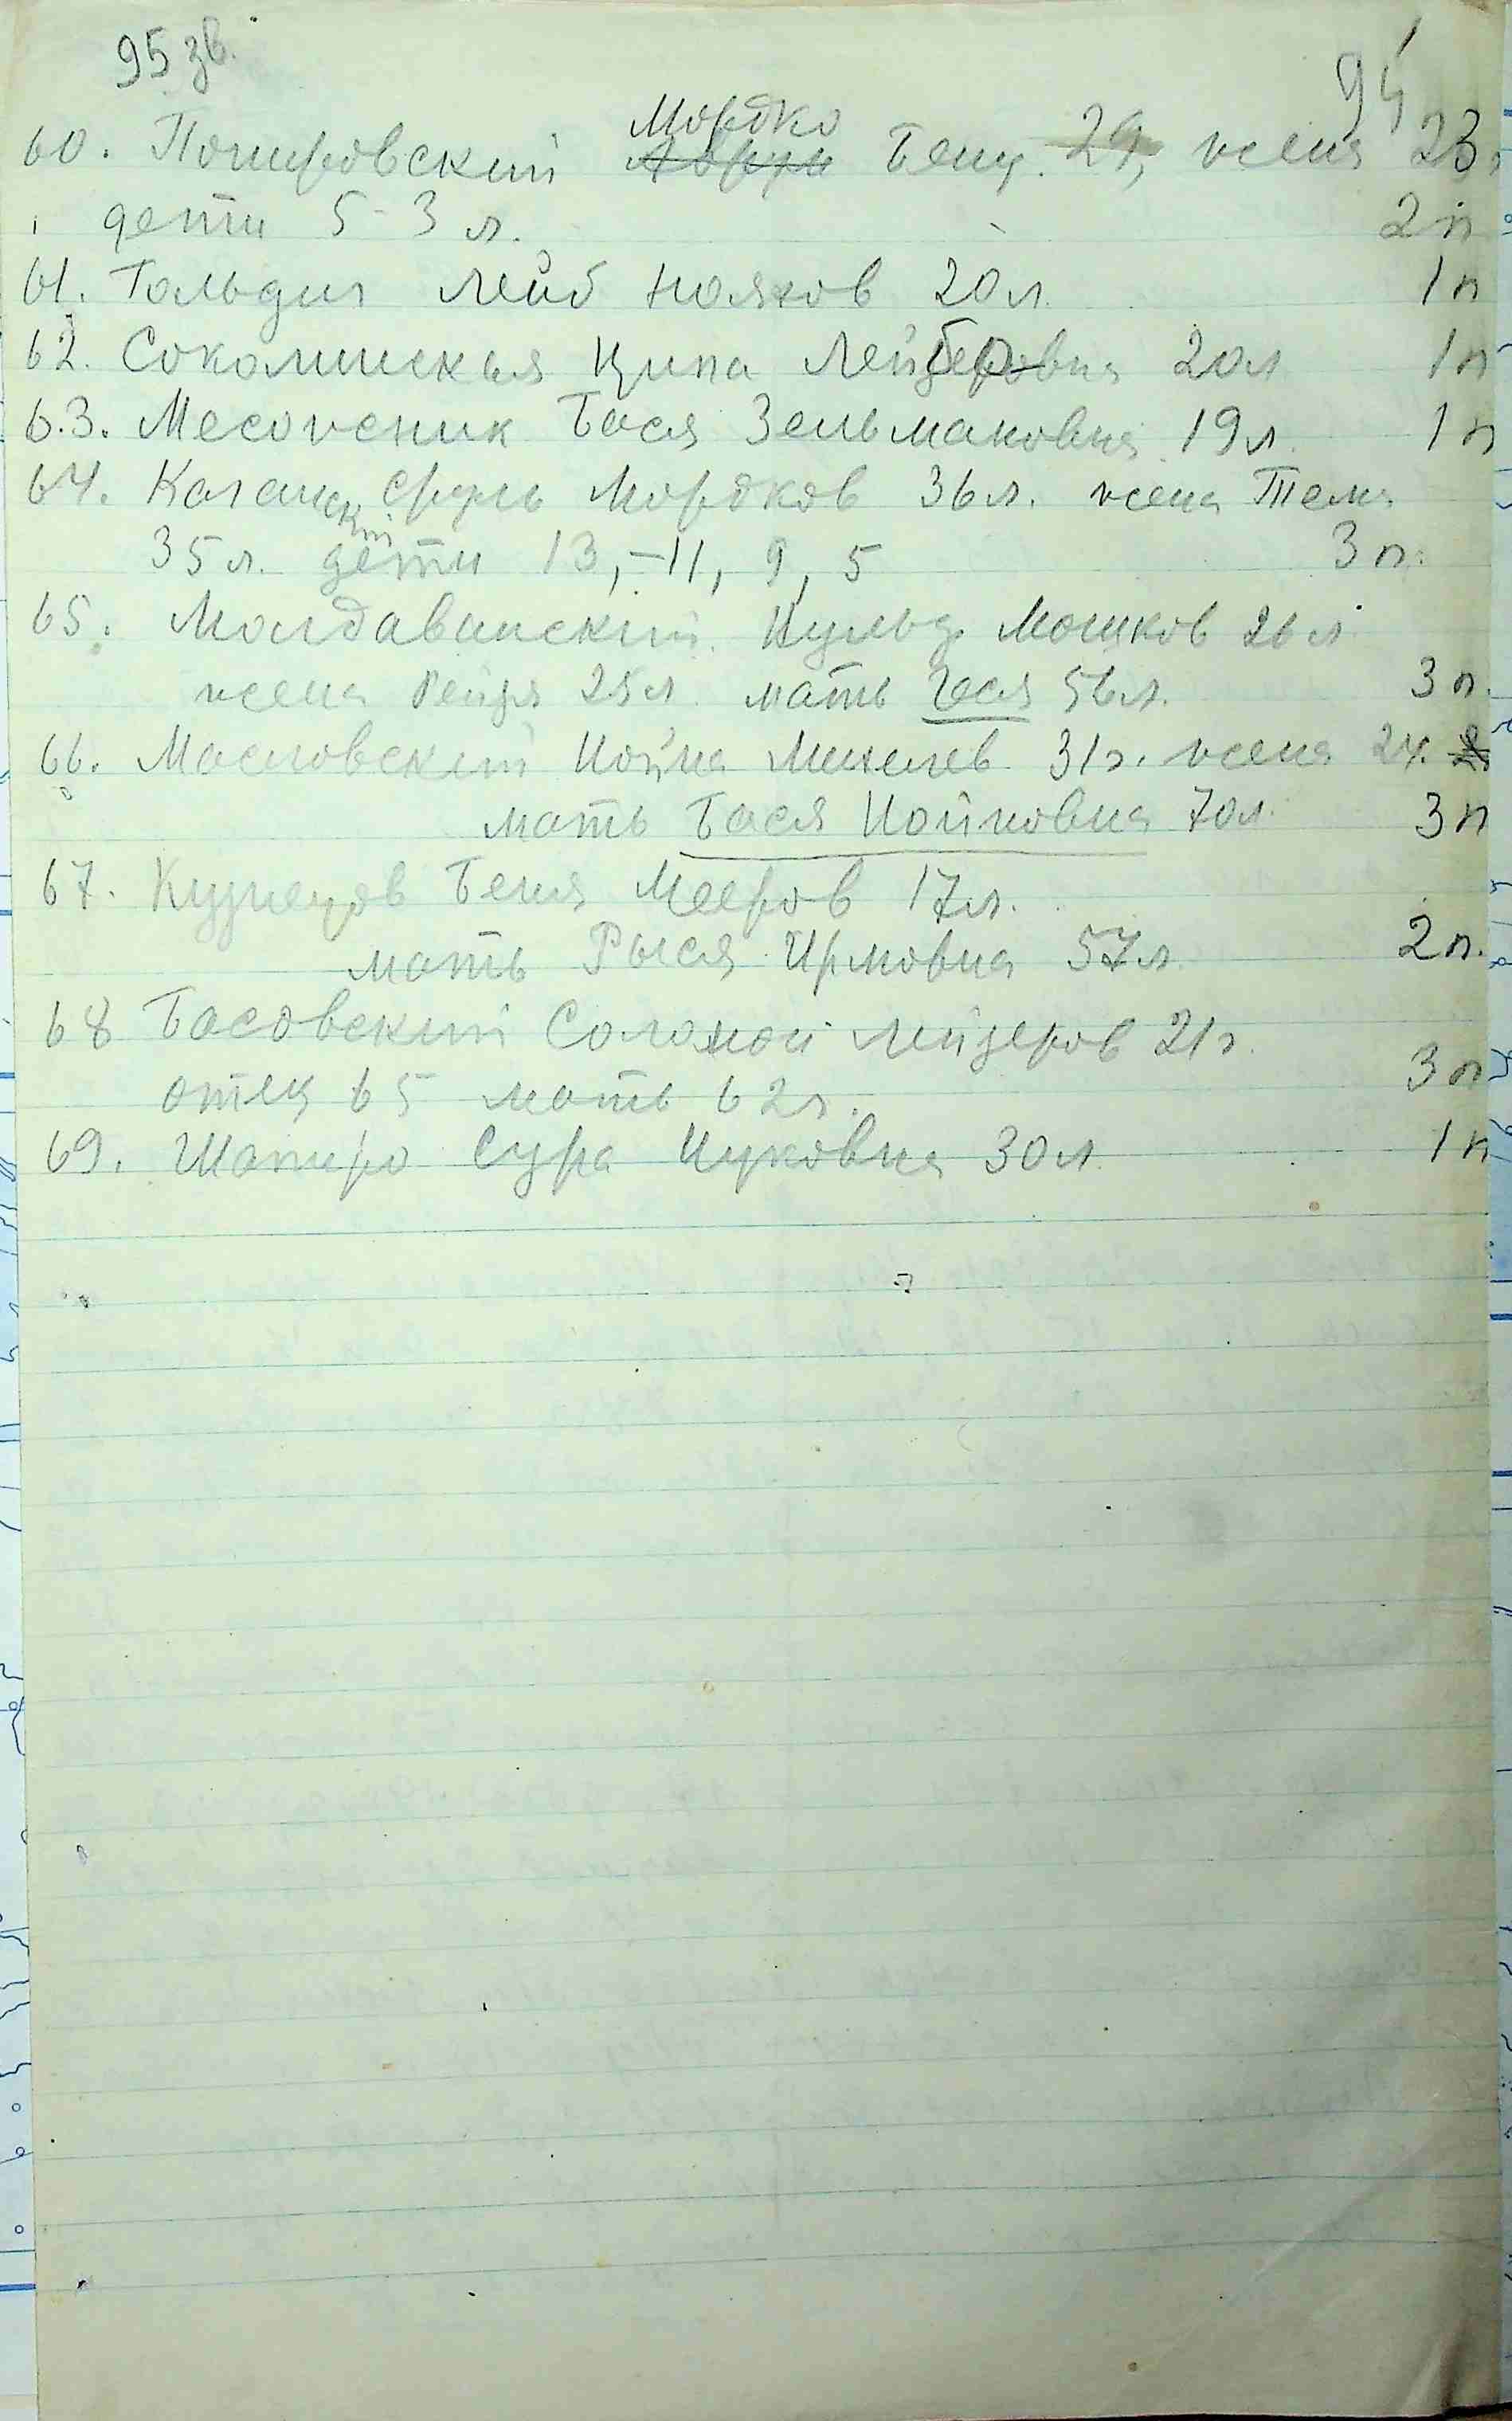 95 зв.
94
Мордко
60. Погировский Аврум Бенц. 29, жена 23
дети 5 - 3 л. 2 п
61. Гольдин Лейб Нояхов 20 л. 1 п
62. Соколинская Ципа Лейберовна 20 л 1 п
63. Месожник Бася Зельмановна 19 л. 1 п
64. Каганский Сруль Мордков 36 л. жена Тема
35 л. дети 13, - 11, 9, 5 3 п.
65. Молдаванский Мошков 26 л
жена Рейзя 25 л. мать Геся 56 л. 3 п.
66. Масловский Нойма Михелев 31 г. жена 24.
мать Бася Нойховна 70 л. 3 п
67. Кузнецов Беня Мееров 17 л.
мать Рыся Ирмовна 57 л. 2 п.
68 Басовский Соломон Лейзеров 21 г.
отец 65 мать 62 г. 3 п
69. Шапиро Сура Ицковна 30 л. 1 п